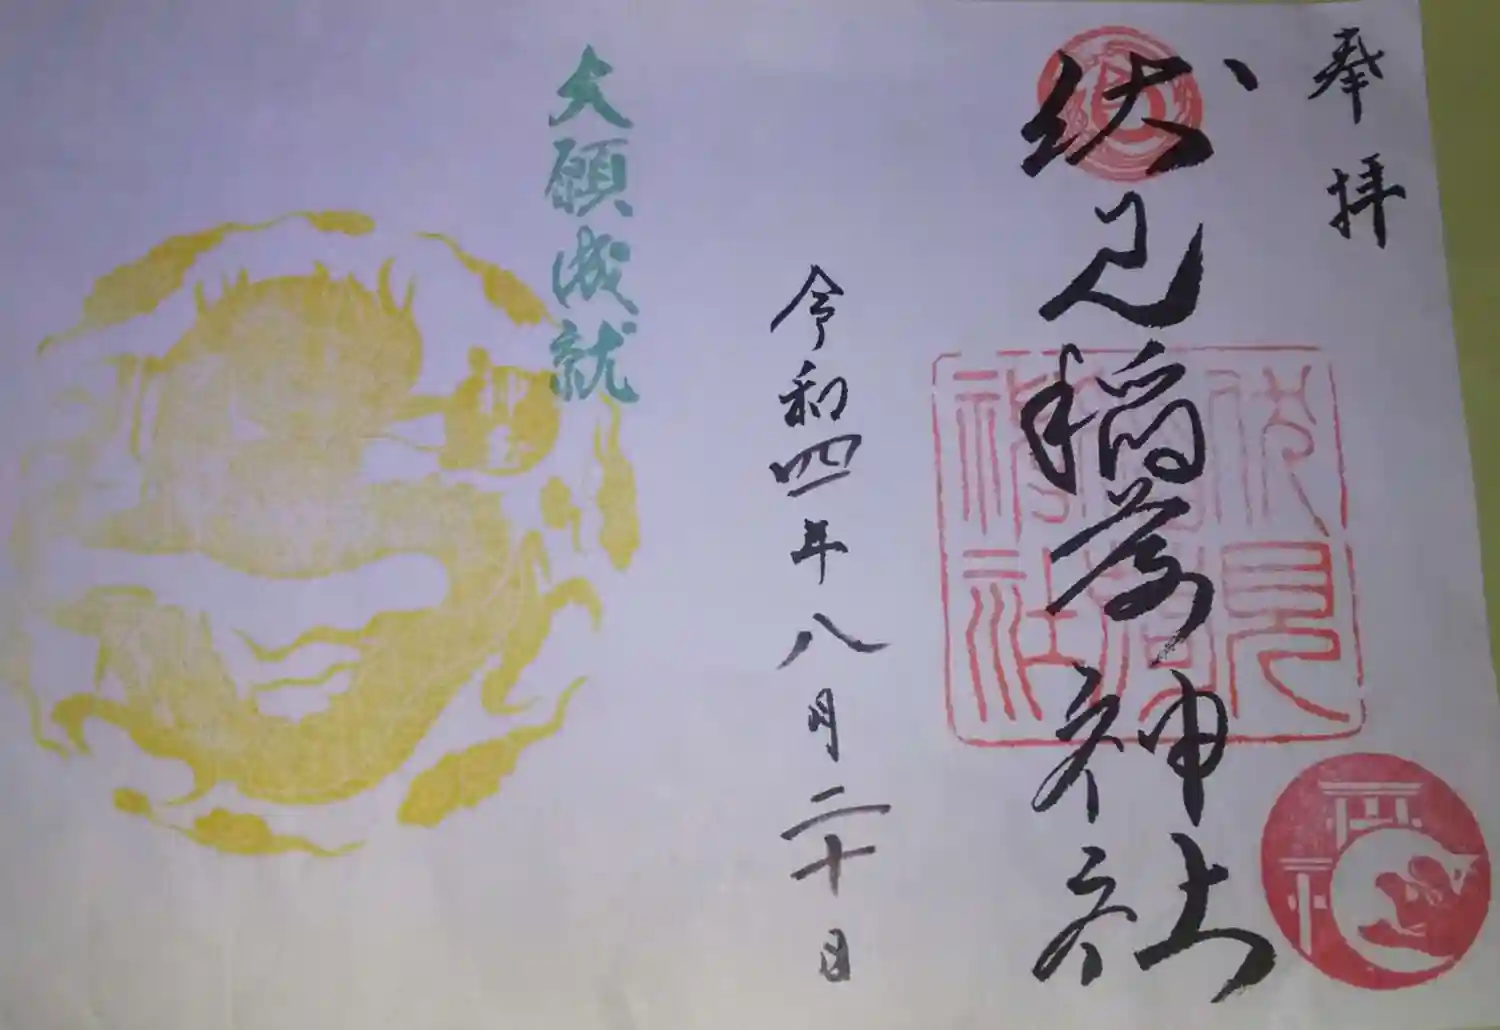 奉拝
伏見稲荷神社
伏見
稲荷
神社
令和四年八月二十日
大願成就